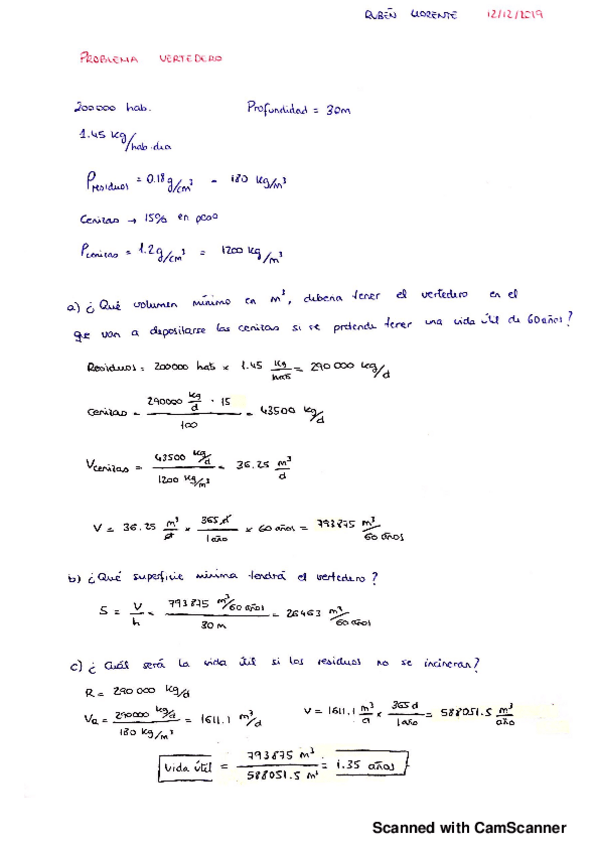 RUBÉN LLORENTE 12/12/2019
PROBLEMA VERTEDERO
200000 hab. Profundidad = 30m
1.45 Kg/hab·dia
Presiduos = 0.18 g/cm³ = 180 Kg/m³
Cenizas → 15% en peso
Pcenizas = 1.2 g/cm³ = 1200 Kg/m³
a) ¿Qué volumen mínimo en m³, deberia tener el vertedero en el
que van a depositarse las cenizas si se pretende tener una vida útil de 60 años?
Residuos = 200000 hab × 1.45 Kg/hab = 290 000 kg/d
Cenizas = 290000 kg/d · 15 / 100 = 43500 kg/d
Vcenizas = 43500 kg/d / 1200 kg/m³ = 36.25 m³/d
V = 36.25 m³/d × 365 d/1 año × 60 años = 793875 m³/60 años
b) ¿Qué superficie mínima tendrá el vertedero?
S = V/h = 793875 m³/60 años / 30 m = 26463 m²/60 años
c) ¿Cuál será la vida útil si los residuos no se incineran?
R = 290 000 kg/d
VR = 290000 kg/d / 180 kg/m³ = 1611.1 m³/d V = 1611.1 m³/d × 365 d/1 año = 588051.5 m³/año
Vida útil = 793875 m³ / 588051.5 m³ = 1.35 años
Scanned with CamScanner